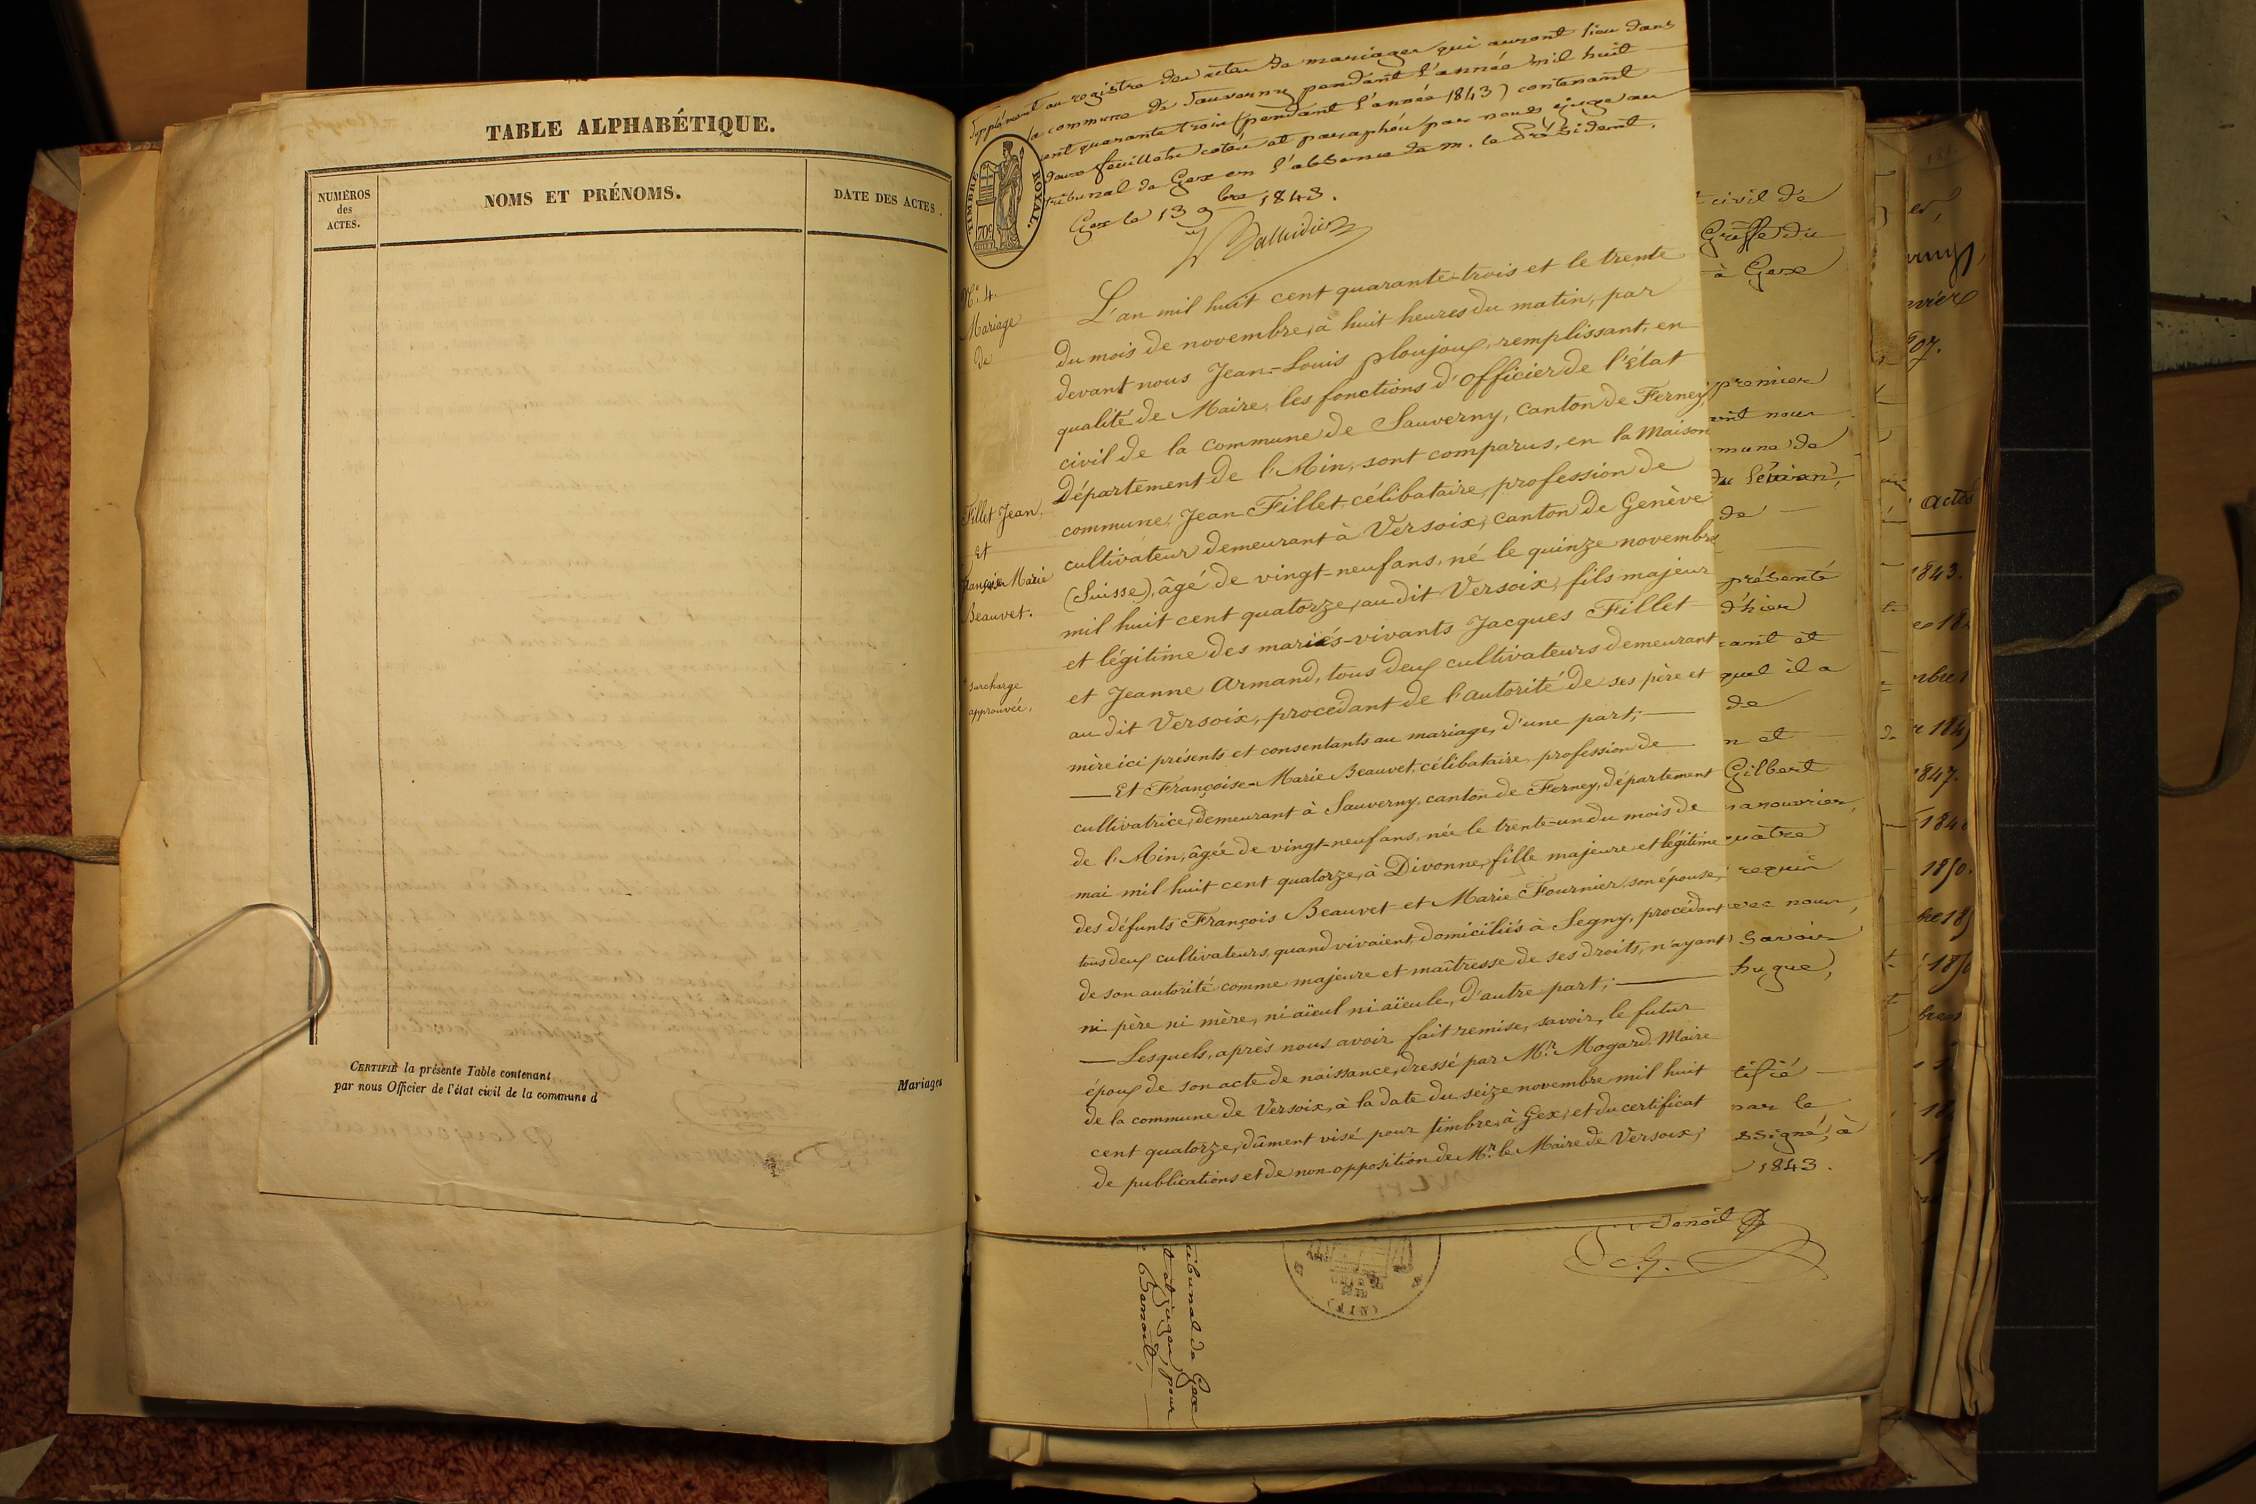 TABLE ALPHABÉTIQUE.
NUMÉROS
des
ACTES.
NOMS ET PRÉNOMS.
DATE DES ACTES.
CERTIFIÉ la présente Table contenant
par nous Officier de l'état civil de la commune d
Mariages
Supplément au registre des actes de mariages qui auront lieu dans
la commune de Sauverny pendant l'année mil huit
cent quarante trois (pendant l'année 1843) contenant
deux feuillets cotés et paraphés par nous, juge au
tribunal de Gex en l'absence de M. le Président.
Gex le 13 9bre 1843.
TIMBRE ROYAL.
70c
N° 4.
Mariage
de
Fillet Jean,
et
Françoise Marie
Beauvet.
surcharge
approuvée,
L'an mil huit cent quarante-trois et le trente
du mois de novembre, à huit heures du matin, par
devant nous Jean-Louis Ploujoux, remplissant, en
qualité de Maire, les fonctions d'officier de l'État
civil de la commune de Sauverny, canton de Ferney,
Département de l'Ain, sont comparus, en la Maison
commune, Jean Fillet, célibataire, profession de
cultivateur demeurant à Versoix, canton de Genève
(Suisse), âgé de vingt-neuf ans, né le quinze novembre
mil huit cent quatorze, au dit Versoix, fils majeur
et légitime des mariés-vivants Jacques Fillet
et Jeanne Armand, tous deux cultivateurs demeurant
au dit Versoix, procédant de l'autorité de ses père et
mère ici présents et consentants au mariage, d'une part;
— Et Françoise Marie Beauvet, célibataire, profession de
cultivatrice, demeurant à Sauverny, canton de Ferney, département
de l'Ain, âgée de vingt-neuf ans, née le trente-un du mois de
mai mil huit cent quatorze, à Divonne, fille majeure et légitime
des défunts François Beauvet et Marie Fournier, son épouse,
tous deux cultivateurs, quand vivaient, domiciliés à Segny, procédant
de son autorité comme majeure et maîtresse de ses droits, n'ayant
ni père ni mère, ni aïeul ni aïeule, d'autre part;
— Lesquels, après nous avoir fait remise, savoir, le futur
époux de son acte de naissance, dressé par Mr. Mogard, Maire
de la commune de Versoix, à la date du seize novembre mil huit
cent quatorze, dûment visé pour timbre, à Gex, et du certificat
de publications et de non-opposition de Mr. le Maire de Versoix;
civil de
Greffe du
à Gex
premier
nous
de
présenté
d'hier
et
quel il a
de
et
Gilbert
manouvrier,
quatre
requis
avec nous,
savoir
tifié
par le
ssigné, à
1843.
Benoit
tribunal de Gex
pour
Benoit,
(AIN)
actes
1843.
1847.
1850.